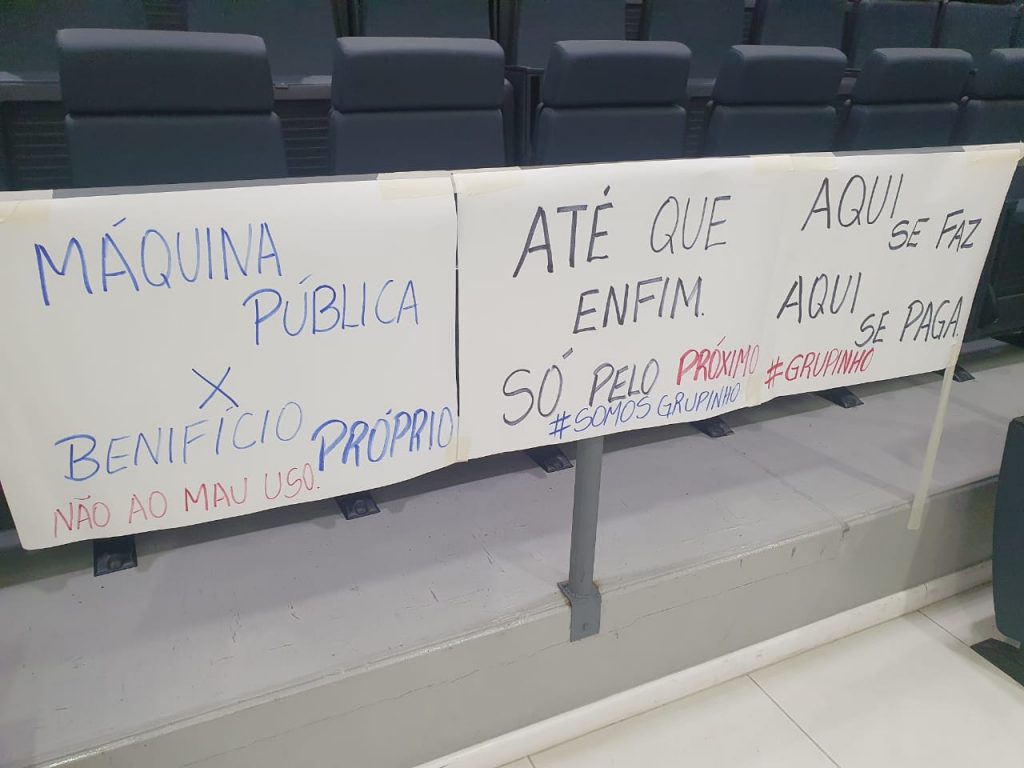 MÁQUINA
PÚBLICA
X
BENIFÍCIO PRÓPRIO
NÃO AO MAU USO.
ATÉ QUE
ENFIM.
SÓ PELO PRÓXIMO
#SOMOS GRUPINHO
AQUI
SE FAZ
AQUI
SE PAGA.
#GRUPINHO